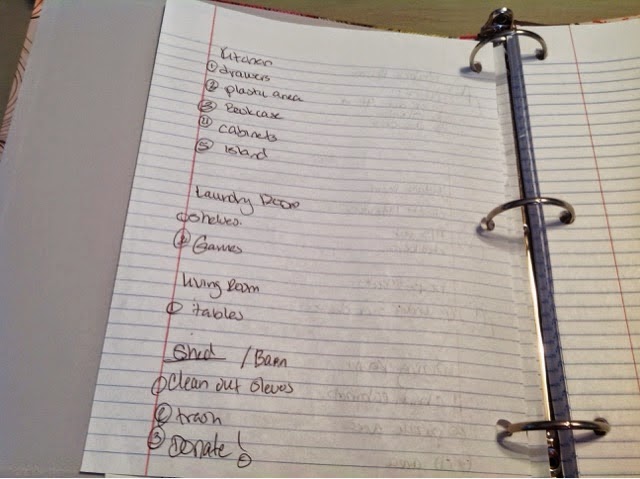 Kitchen
① drawers
② plastic area
③ Bookcase
④ cabinets
⑤ island
Laundry Room
① shelves.
② Games
Living Room
① tables
Shed / Barn
① Clean out
② trash
③ Donate!